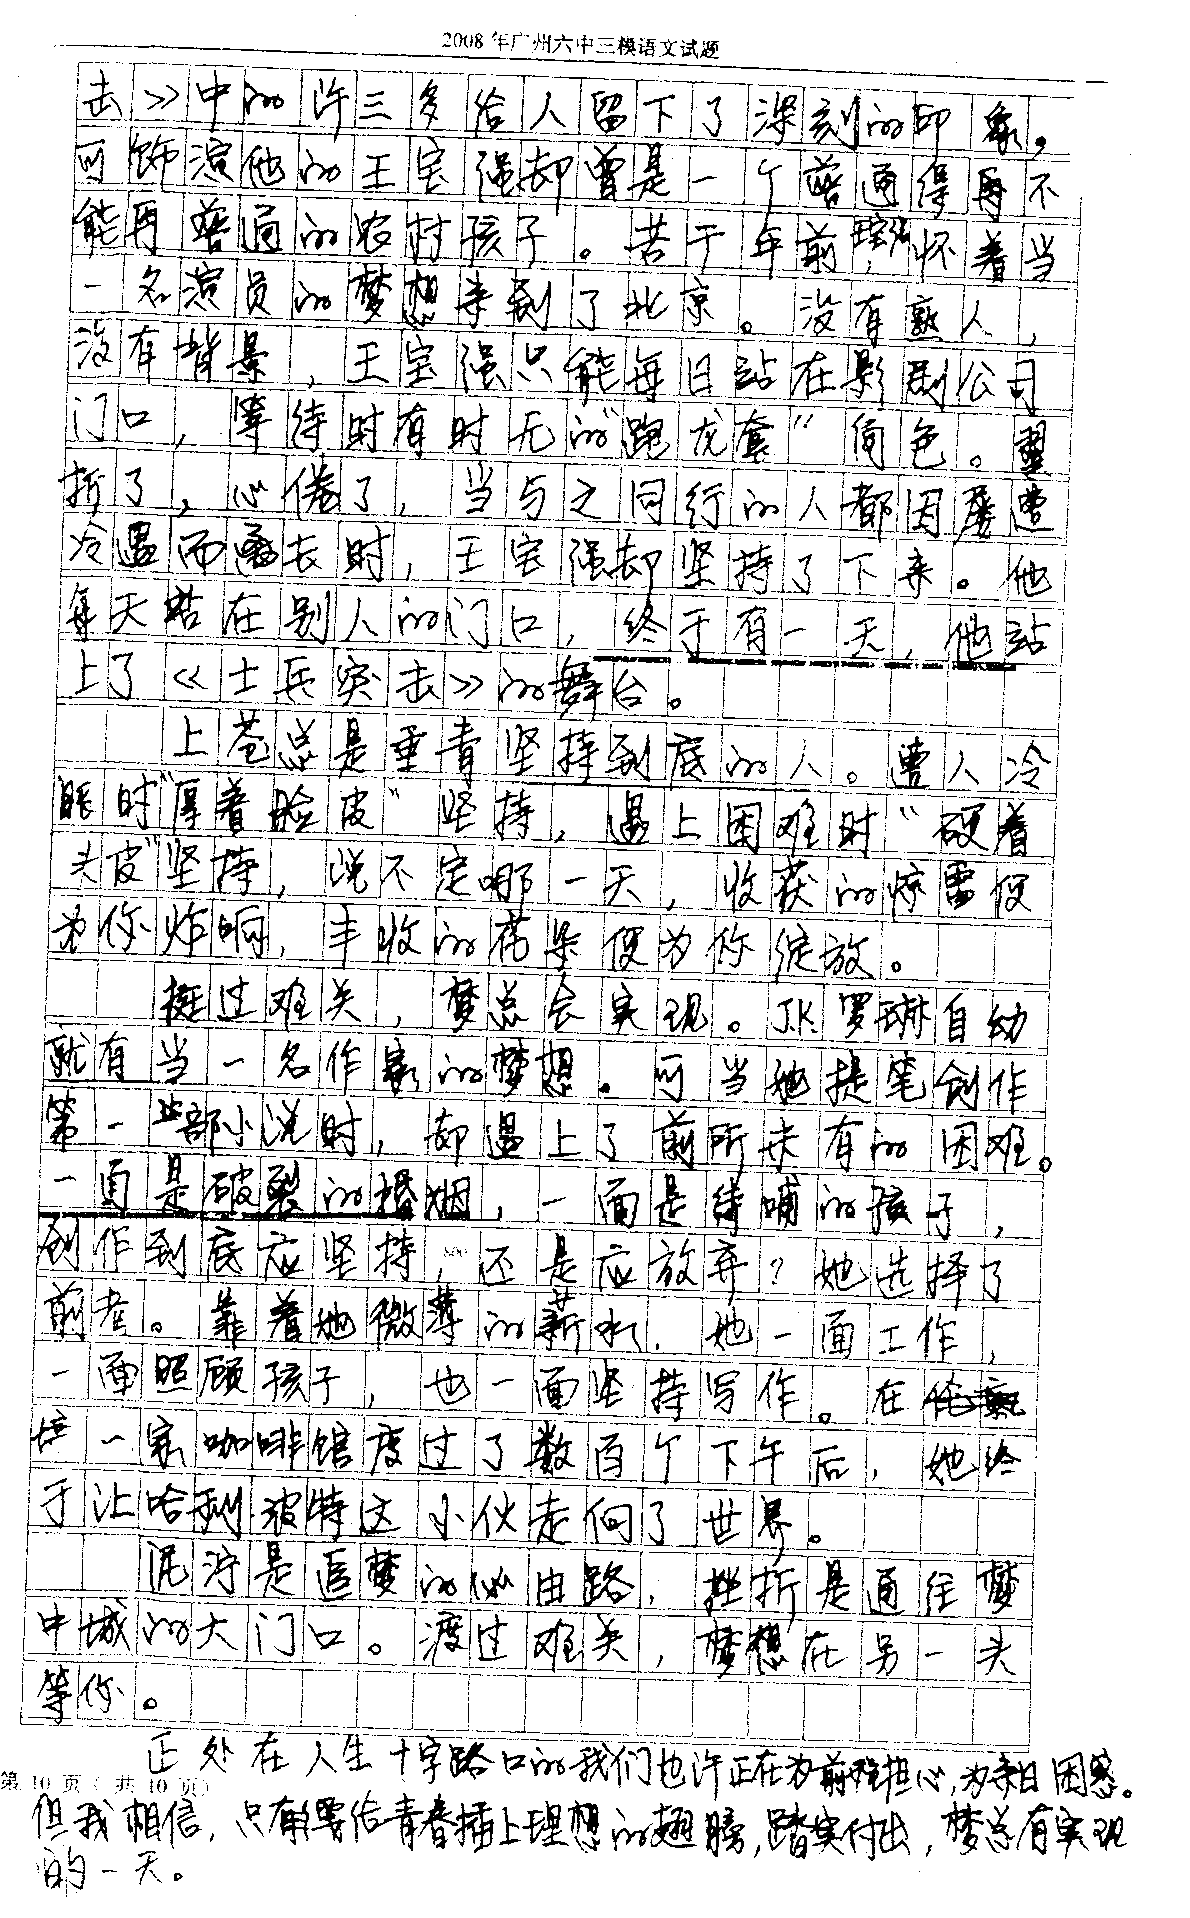 2008年广州六中三模语文试题
击》中的许三多给人留下了深刻的印象。
可饰演他的王宝强却曾是一个普通得再不
能再普通的农村孩子。若干年前,王宝强怀着当
一名演员的梦想来到了北京。没有熟人,
没有背景,王宝强只能每日站在影剧公司
门口,等待时有时无的"跑龙套"角色。翼
折了,心倦了,当与之同行的人都因屡遭
冷遇而离去时,王宝强却坚持了下来。他
每天站在别人的门口,终于有一天,他站
上了《士兵突击》的舞台。
上苍总是垂青坚持到底的人。遭人冷
眼时"厚着脸皮"坚持,遇上困难时"硬着
头皮"坚持,说不定哪一天,收获的惊雷便
为你炸响,丰收的花朵便为你绽放。
挺过难关,梦总会实现。J.K.罗琳自幼
就有当一名作家的梦想。可当她提笔创作
第一部小说时,却遇上了前所未有的困难。
一面是破裂的婚姻,一面是待哺的孩子,
创作到底应坚持,还是应放弃?她选择了
前者。靠着她微薄的薪水,她一面工作,
一面照顾孩子,也一面坚持写作。在
一家咖啡馆度过了数百个下午后,她终
于让哈利波特这小伙走向了世界。
泥泞是追梦的必由路,挫折是通往梦
中城的大门口。渡过难关,梦想在另一头
等你。
正处在人生十字路口的我们也许正在为前程担心,为来日困惑。
第 10 页 ( 共 10 页)
但我相信,只有要给青春插上理想的翅膀,踏实付出,梦总有实现
的一天。